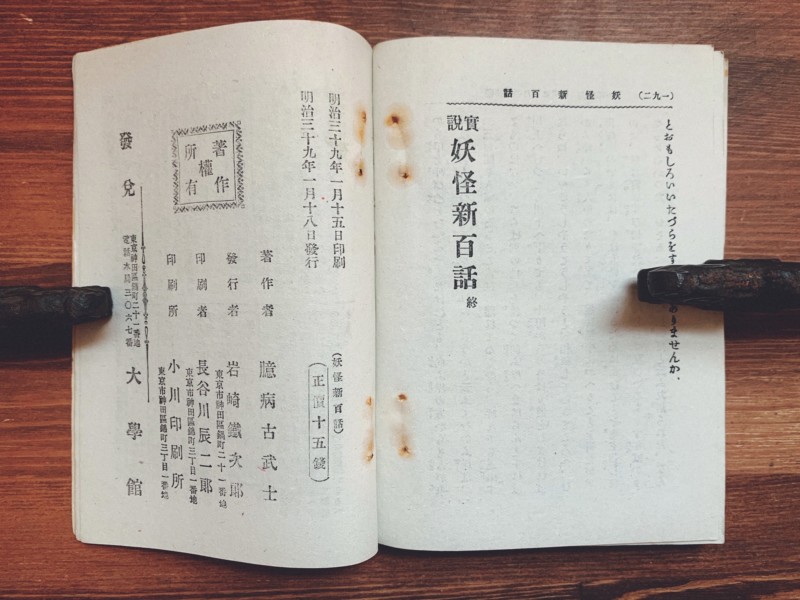 （一九二） 妖怪新百話
とおもしろいいたづらをす
ありませんか。
實說 妖怪新百話 終
明治三十九年一月十五日印刷
明治三十九年一月十八日發行
（妖怪新百話）
正價十五錢
著作權所有
著作者 臆病古武士
發行者 岩崎鐵次郎
東京市神田區錦町二十一番地
印刷者 長谷川辰二郎
東京市神田區錦町三丁目一番地
印刷所 小川印刷所
東京市神田區錦町三丁目一番地
發兌 大學館
東京神田區錦町二十一番地
電話本局三〇六七番